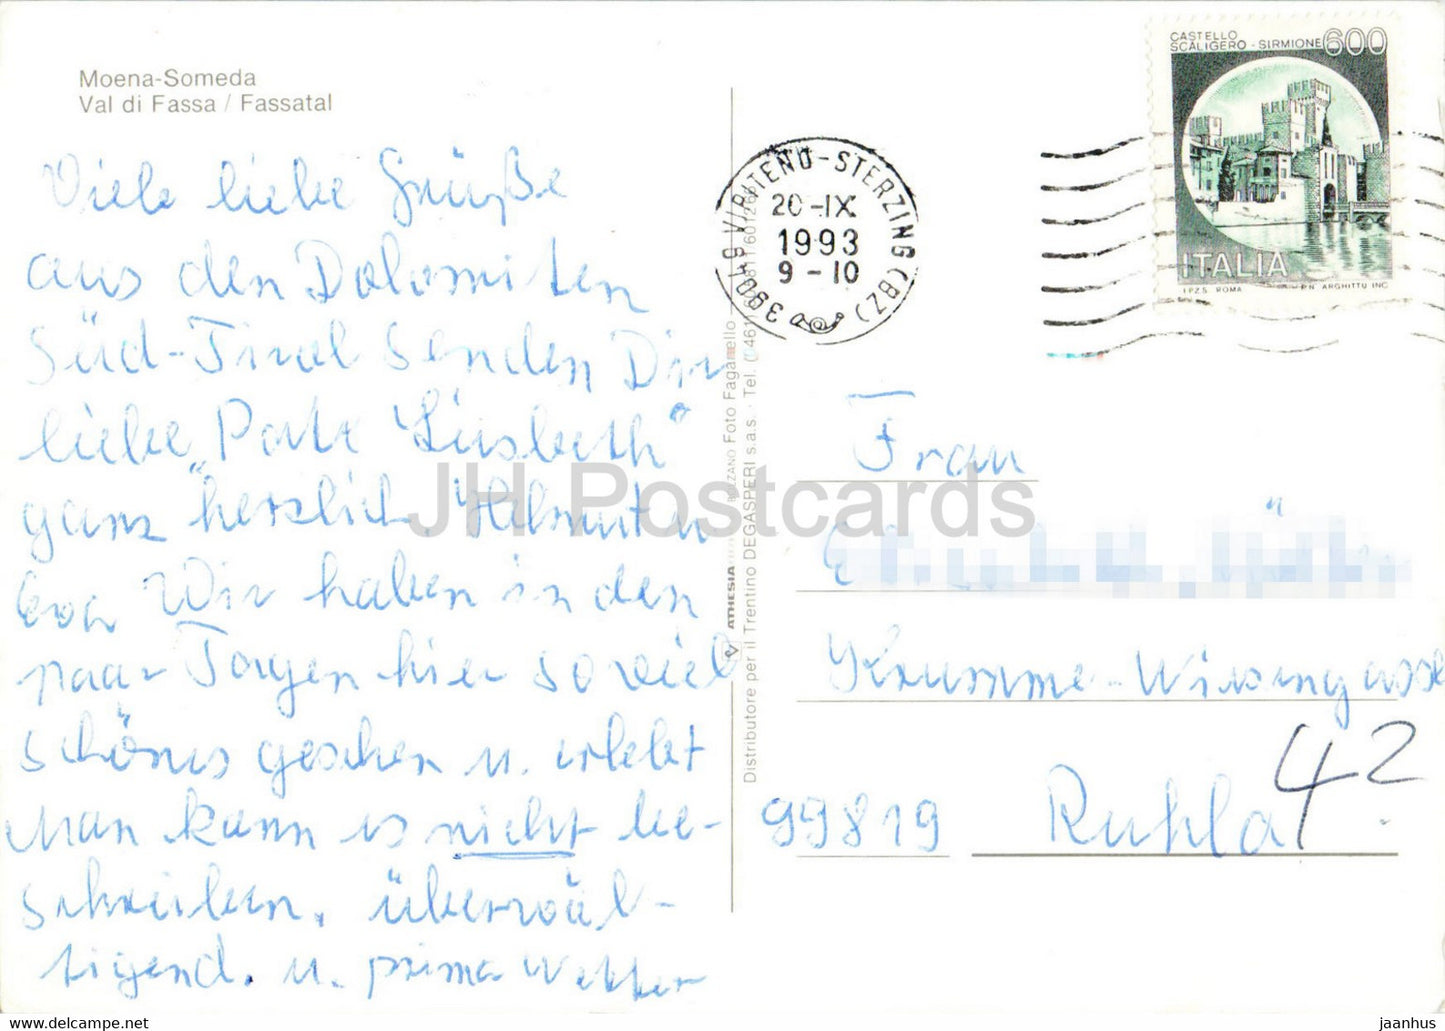 Moena-Someda
Val di Fassa / Fassatal
Viele liebe Grüße
aus den Dolomiten
Süd-Tirol senden Dir
liebe Pate "Lisbeth"
ganz herzlich. Helmut u
Eva Wir haben in den
paar Tagen hier so viel
schönes gesehen u. erlebt
Man kann es nicht be-
schreiben. überwäl-
tigend. u. prima Wetter
ATHESIA BOZZANO Foto Faganello
Distributore per il Trentino DEGASPERI s.a.s. - Tel.
39049 VIPITENO-STERZING (BZ)
20-IX
1993
9-10
CASTELLO
SCALIGERO - SIRMIONE 600
ITALIA
I.P.Z.S. ROMA P.N. ARGHITTU INC.
Frau
Krumme-Wiesengasse
42
99819 Ruhla
JH Postcards
jaanhus